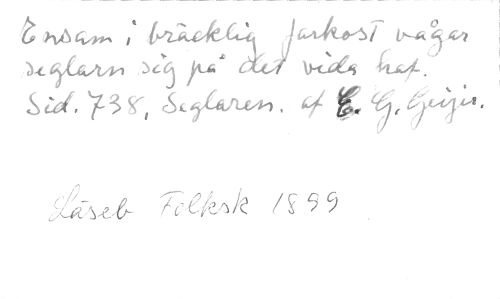 Ensam i bräcklig farkost vågar
seglarn sig på det vida haf.
Sid. 738, Seglaren. af E. G. Geijer.
Läseb Folksk 1899